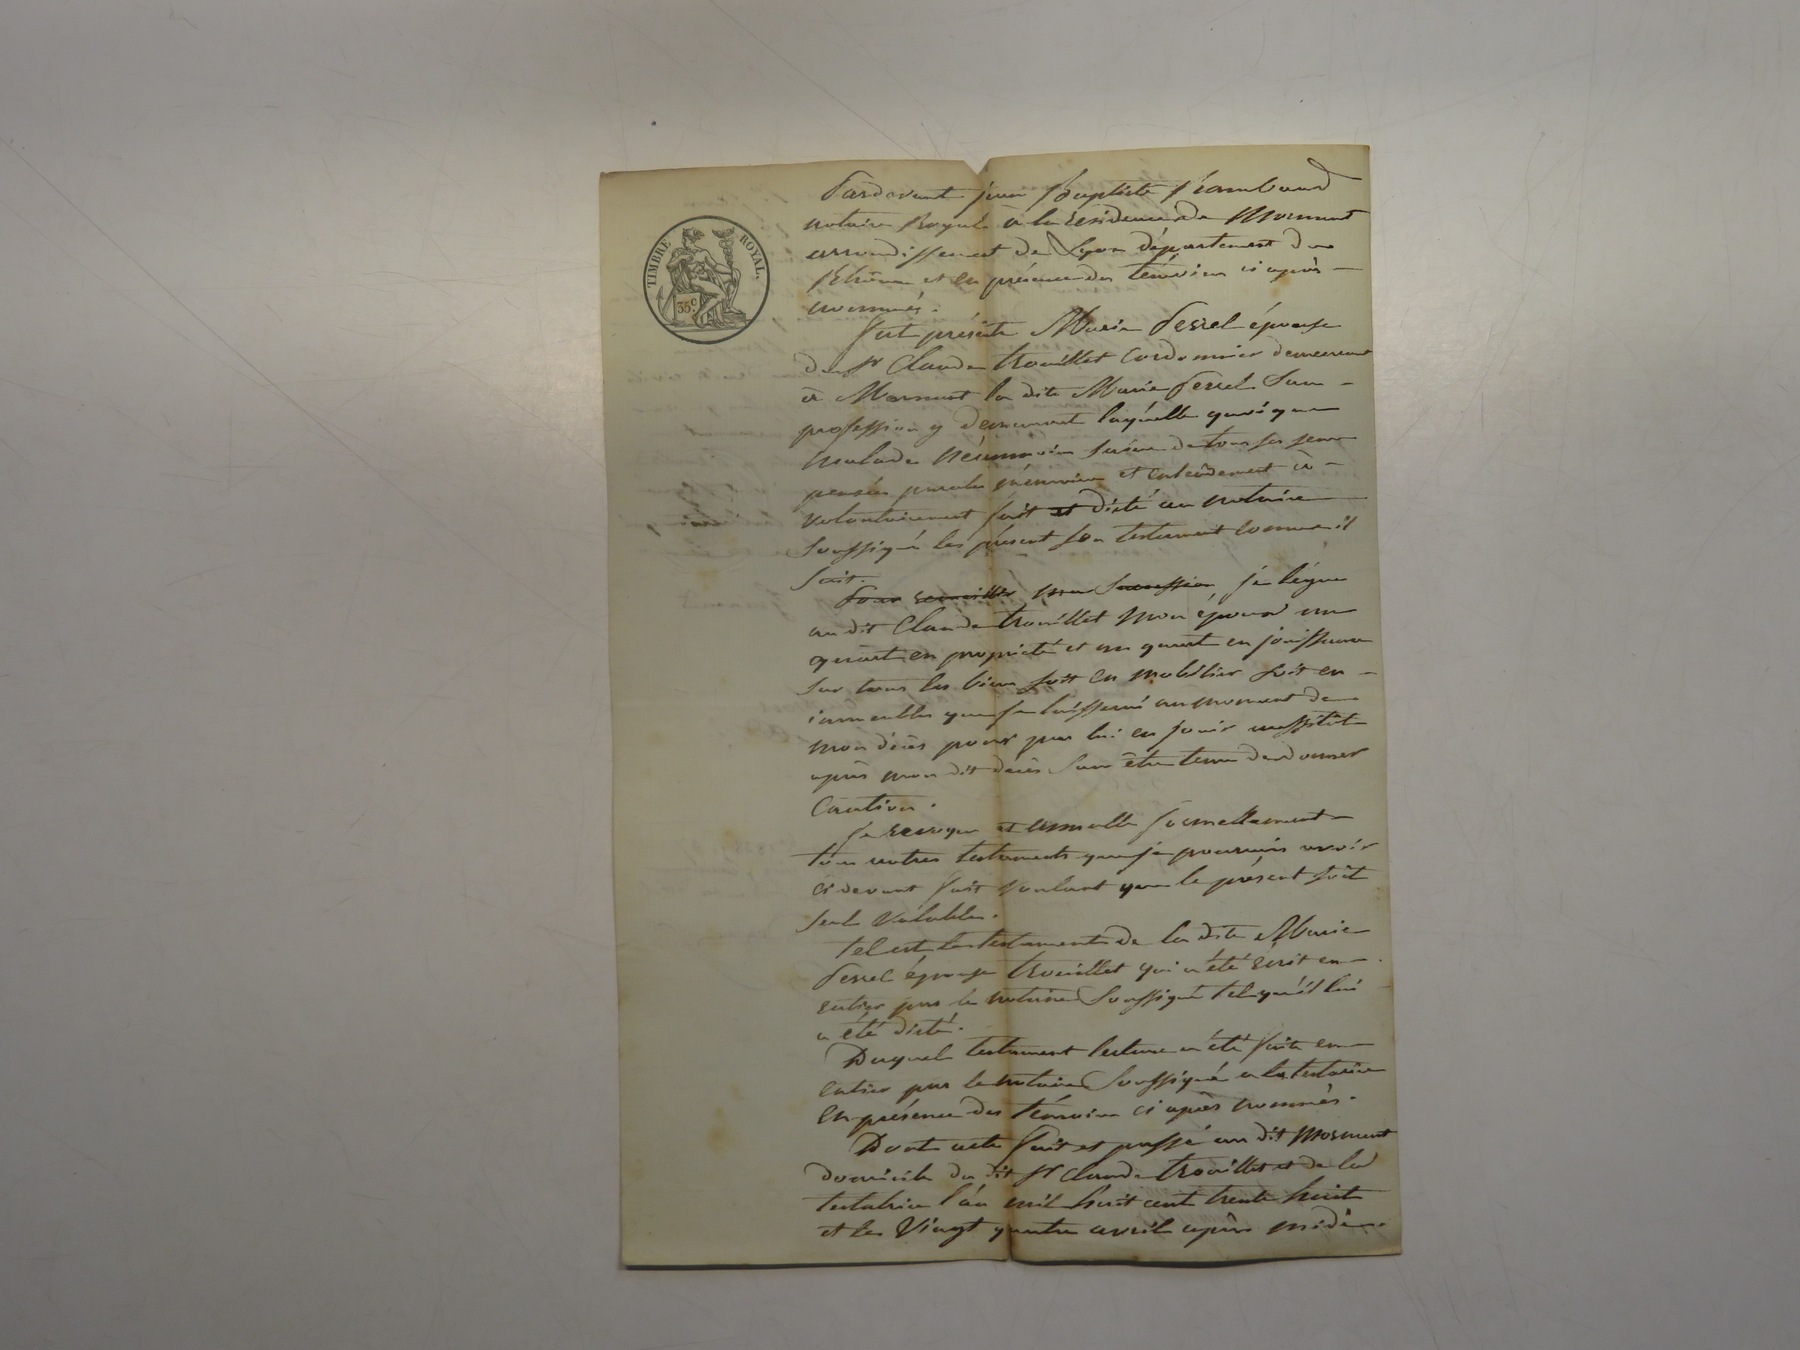 TIMBRE ROYAL.
35 c.
Pardevant jean Baptiste
notaire Royal à la résidence de Mornant
arrondissement de Lyon département du
Rhône et en présence des témoins ci après
nommés.
fut présente Marie Perrel épouse
du Sr Claude trouillet Cordonnier demeurant
à Mornant la dite Marie Perrel Sans
profession y demeurant laquelle quoi que
malade néanmoins Saine de tous ses sens
pensées parole mémoire et entendement à
volontairement fait et dicté au notaire
Soussigné les présent Son testament comme il
Suit.
Pour recueillir ma Succession je lègue
au dit Claude trouillet mon époux un
quart en propriété et un quart en jouissance
Sur tous les biens soit en mobilier soit en
immeubles que je laisserai au moment de
mon décès pour par lui en jouir aussitôt
après mon dit décès Sans être tenu de donner
Caution.
je revoque et annulle formellement
tous autres testaments que je pourrais avoir
ci devant fait voulant que le présent soit
seul valable.
tel est le testament de la dite Marie
Perrel épouse trouillet qui a été écrit en
entier par le notaire Soussigné tel qu'il lui
a été dicté.
Duquel testament lecture a été faite en
entier par le notaire Soussigné a la testatrice
en présence des témoins ci après nommés.
Dont acte fait et passé au dit Mornant
domicile du dit Sr Claude trouillet et de la
testatrice l'an mil huit cent trente huit
et le Vingt quatre avril après midi.